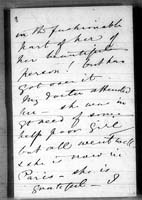 in the fashionable
part of her of
her beautiful
person! but has
got over it
My doctor attended
her — she was in
need of some
help poor Girl
but all went well
& she is now in
Paris — she is
grateful — I